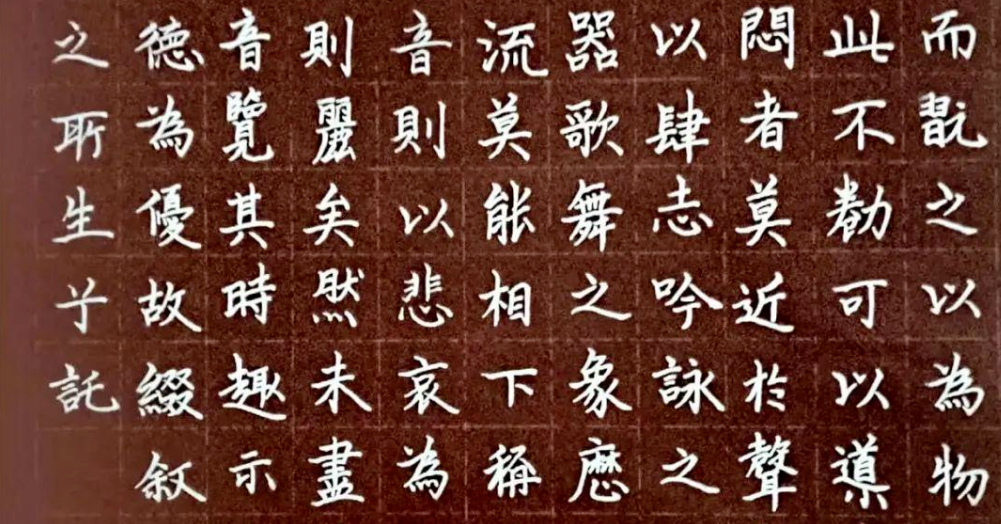 而翫之以為物
此不勌可以導
悶者莫近於聲
以肆志吟詠之
器歌舞之象歷
流莫能相下稱
音則以悲哀為
則麗矣然未盡
音覽其時趣示
德為優故綴叙
之所生兮託